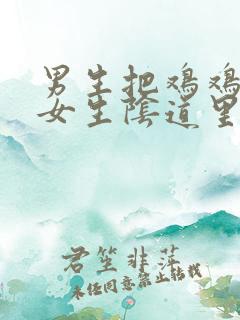 男生把鸡鸡
女生阴道里
君笙非萍
未经同意禁止转载